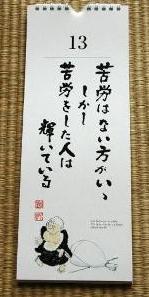 13
苦労はない方がいゝ
しかし
苦労をした人は
輝いている